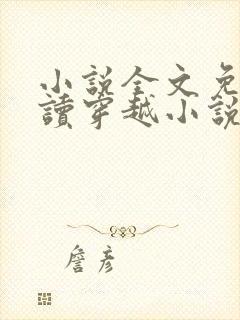 小說全文免
讀穿越小說
詹彥